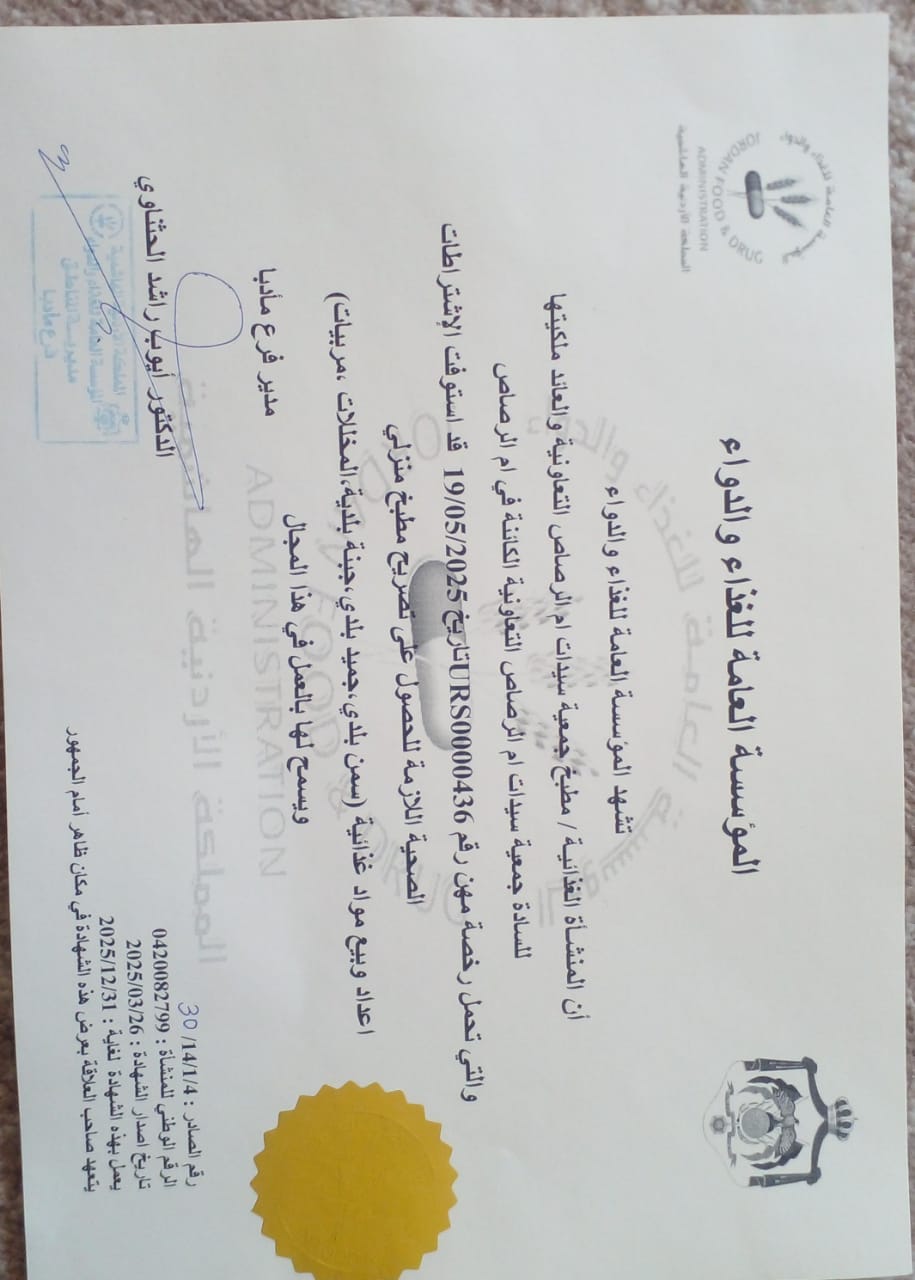 المؤسسة العامة للغذاء والدواء
JORDAN FOOD & DRUG
ADMINISTRATION
المملكة الأردنية الهاشمية
المؤسسة العامة للغذاء والدواء
تشهد المؤسسة العامة للغذاء والدواء
أن المنشأة الغذائية / مطبخ جمعية سيدات ام الرصاص التعاونية والعائد ملكيتها
للسادة جمعية سيدات ام الرصاص التعاونية الكائنة في ام الرصاص
والتي تحمل رخصة مهن رقم URS0000436 تاريخ 19/05/2025 قد استوفت الإشتراطات
الصحية اللازمة للحصول على تصريح مطبخ منزلي
اعداد وبيع مواد غذائية (سمن بلدي،جميد بلدي،جبنة بلدية،المخللات ،مربيات)
ويسمح لها بالعمل في هذا المجال
مدير فرع مأدبا
الدكتور أيوب راشد الحثناوي
المملكة الأردنية الهاشمية
المؤسسة العامة للغذاء والدواء
مديرية المناطق
فرع مادبا
رقم الصادر : 30 /14/1/4
الرقم الوطني للمنشأة : 0420082799
تاريخ اصدار الشهادة : 2025/03/26
يعمل بهذه الشهادة لغاية : 2025/12/31
يتعهد صاحب العلاقة بعرض هذه الشهادة في مكان ظاهر أمام الجمهور
المؤسسة العامة للغذاء والدواء
JORDAN FOOD & DRUG
ADMINISTRATION
المملكة الأردنية الهاشمية